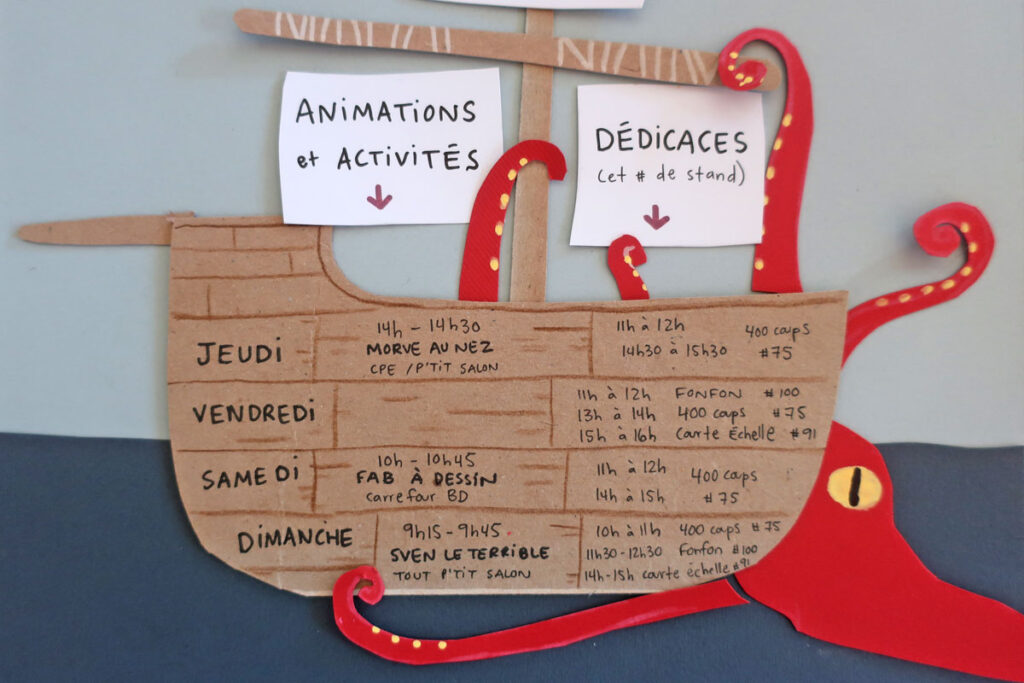 ANIMATIONS
et ACTIVITÉS
DÉDICACES
(et # de stand)
JEUDI
14h - 14h30
MORVE AU NEZ
CPE / P'TIT SALON
11h à 12h
14h30 à 15h30
400 coups
#75
VENDREDI
11h à 12h FONFON #100
13h à 14h 400 coups #75
15h à 16h Courte Échelle #91
SAMEDI
10h - 10h45
FAB À DESSIN
Carrefour BD
11h à 12h
14h à 15h
400 coups
#75
DIMANCHE
9h15 - 9h45
SVEN LE TERRIBLE
TOUT P'TIT SALON
10h à 11h 400 coups #75
11h30-12h30 Fonfon #100
14h-15h courte échelle #91